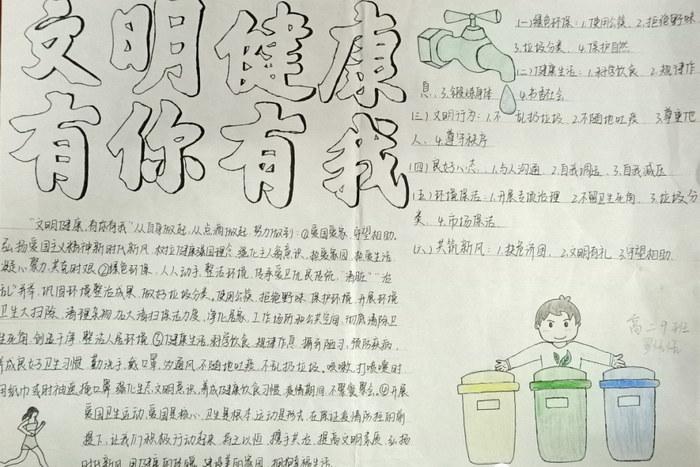 文明健康
有你有我
(一)绿色环保:1.使用公筷、2.拒绝野味
3.垃圾分类、4.保护自然
(二)健康生活:1.科学饮食、2.规律作
息、3.锻炼身体 4.
(三)文明行为:1.不乱扔垃圾、2.不随地吐痰 3.尊重他
人、4.遵守秩序
(四)良好心态:1.与人沟通 2.自我调适、3.自我减压
(五)环境保洁:1.开展专项治理 2.不留卫生死角、3.垃圾分
类、4.市场保洁
(六)共筑新风:1.扶危济困、2.文明有礼、3.守望相助、
"文明健康,有你有我"从自身做起,从点滴做起,努力做到:①爱国爱家,守望相助。
弘扬爱国主义精神新时代新风,树立健康强国理念,强化主人翁意识,热爱家园,热爱生活
凝心聚力,共克时艰。②绿色环保,人人动手,整治环境,传承爱卫优良传统,"清脏""治
乱"并举,巩固环境整治成果,做好垃圾分类,使用公筷,拒绝野味,保护环境,开展环境
卫生大扫除,清理杂物,加大清扫保洁力度,净化居家、工作场所和公共空间,彻底清除卫
生死角,创造干净,整洁人居环境。③健康生活,科学饮食,规律作息,预防疾病,
养成良好卫生习惯,勤洗手,戴口罩,勤通风,不随地吐痰,不乱扔垃圾,咳嗽、打喷嚏时
用纸巾或肘袖遮掩口鼻,强化生态文明意识,养成健康饮食习惯,疫情期间,不聚餐聚会。④开展
爱国卫生运动,爱国是核心,卫生是根本,运动是形式,在保证疫情防控的前
提下,让我们积极行动起来,持之以恒,携手共治,提高文明素质,弘扬
时代新风,
高二9班